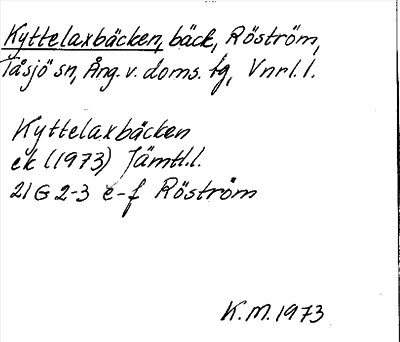 Kyttelaxbäcken, bäck, Röström,
Tåsjö sn, Ång. v. doms. tg, Vnrl. l.
Kyttelaxbäcken
ek (1973) Jämtl.l.
21 G 2-3 e-f Röström
K.M. 1973